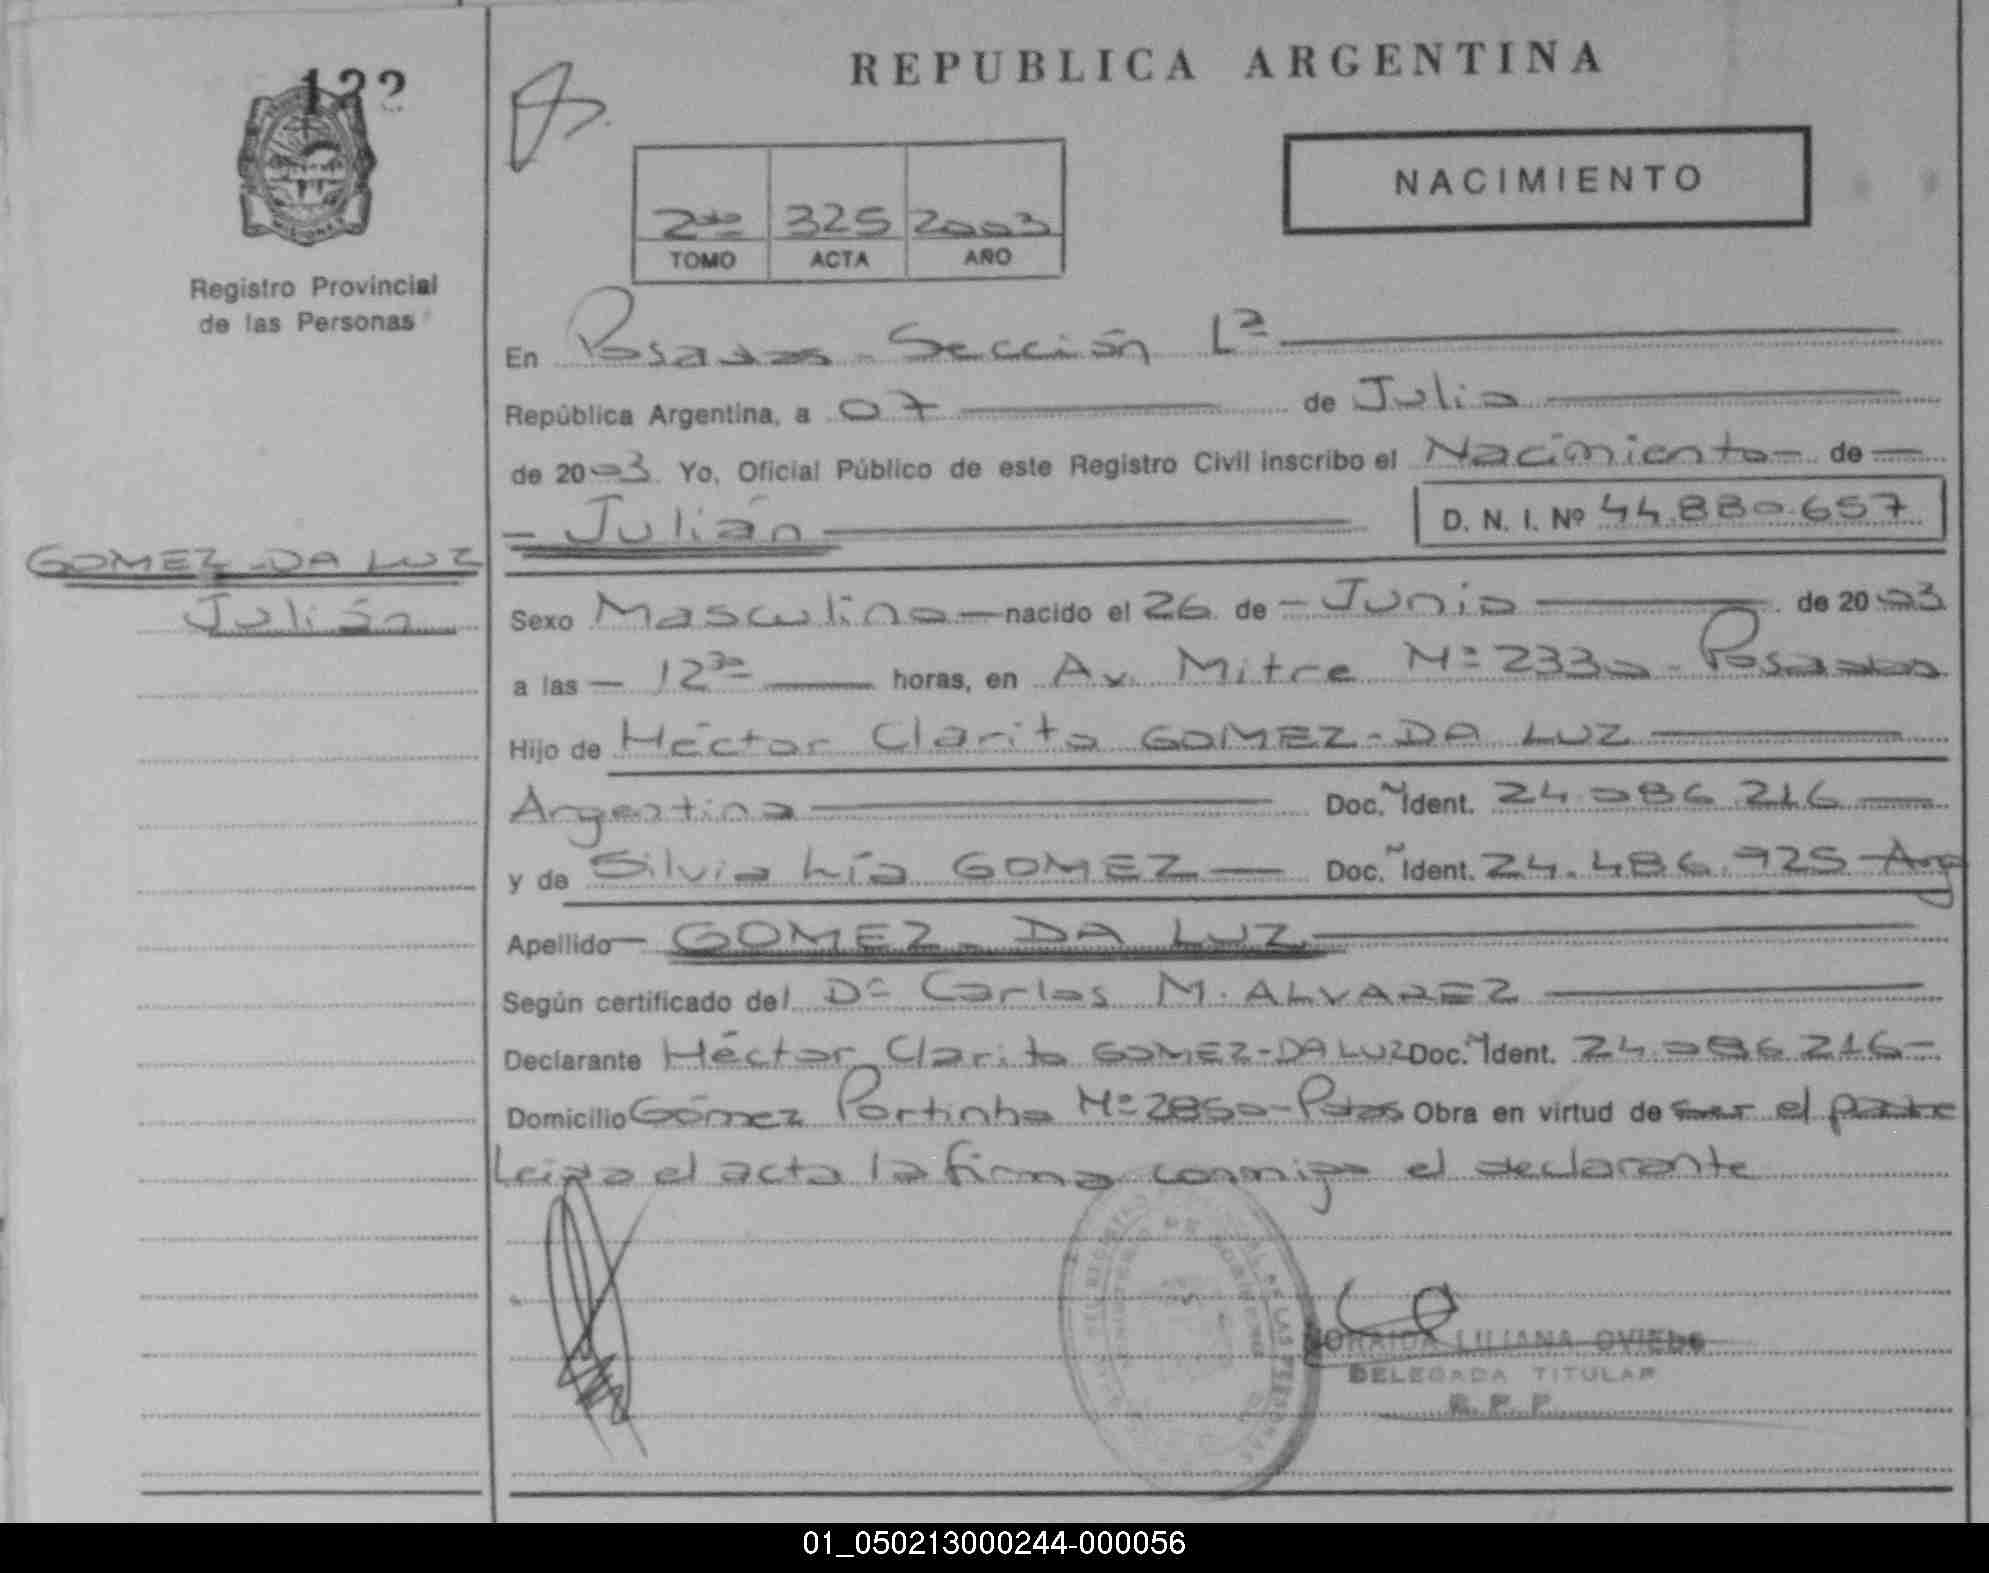 REPUBLICA ARGENTINA
122
NACIMIENTO
2do 325 2003
TOMO ACTA AÑO
Registro Provincial
de las Personas
En Posadas - Sección 1ª
República Argentina, a 07 de Julio
de 2003 Yo, Oficial Público de este Registro Civil inscribo el Nacimiento de
Julián D. N. I. Nº 44.880.657
GOMEZ-DA LUZ
Julián
Sexo Masculino nacido el 26 de Junio de 2003
a las 12 30 horas, en Av. Mitre Nº 2330 - Posadas
Hijo de Héctor Clarito GOMEZ-DA LUZ
Argentina Doc. Ident. 24.086.216
y de Silvia Lía GOMEZ Doc. Ident. 24.486.925 Arg
Apellido GOMEZ - DA LUZ
Según certificado del Dr Carlos M. ALVAREZ
Declarante Héctor Clarito GOMEZ-DA LUZ Doc. Ident. 24.086.216
Domicilio Gómez Portinho Nº 2850 - Pdas Obra en virtud de ser el padre
Leida el acta la firma conmigo el declarante
LILIANA OVIEDO
DELEGADA TITULAR
R.P.P.
01_050213000244-000056